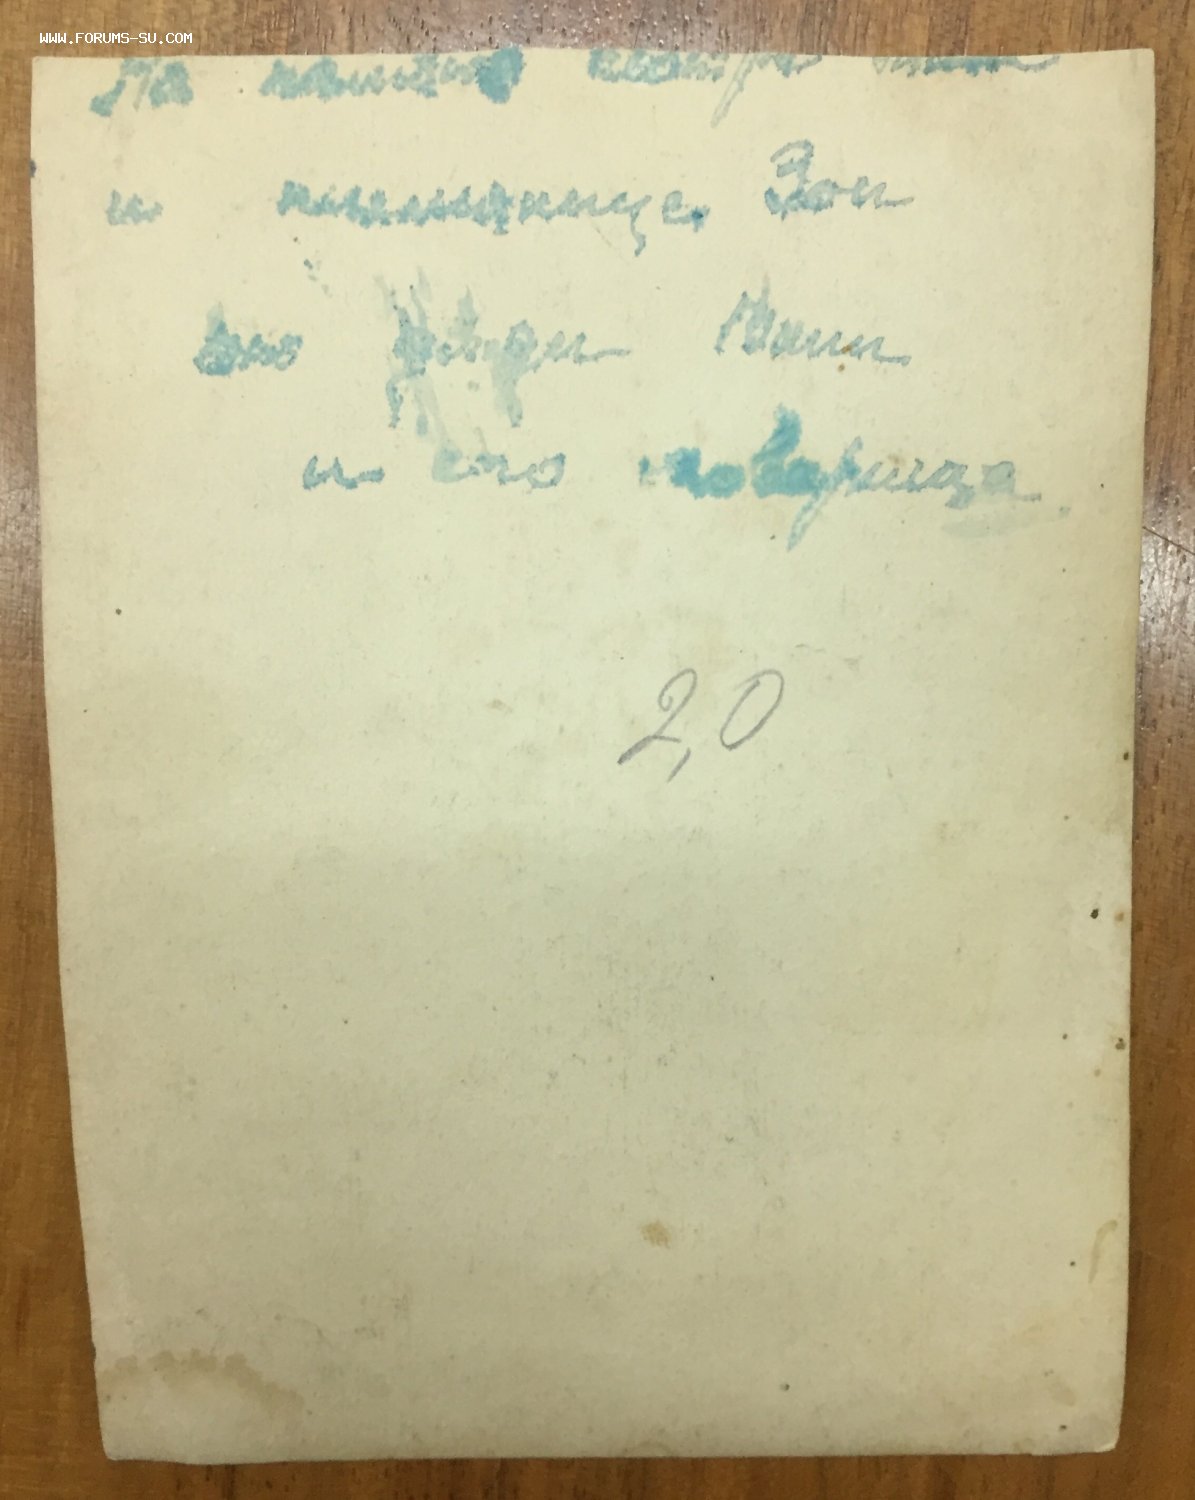 WWW.FORUMS-SU.COM
На память
и племяннице Зои
от дяди Вани
и его товарища
2,0